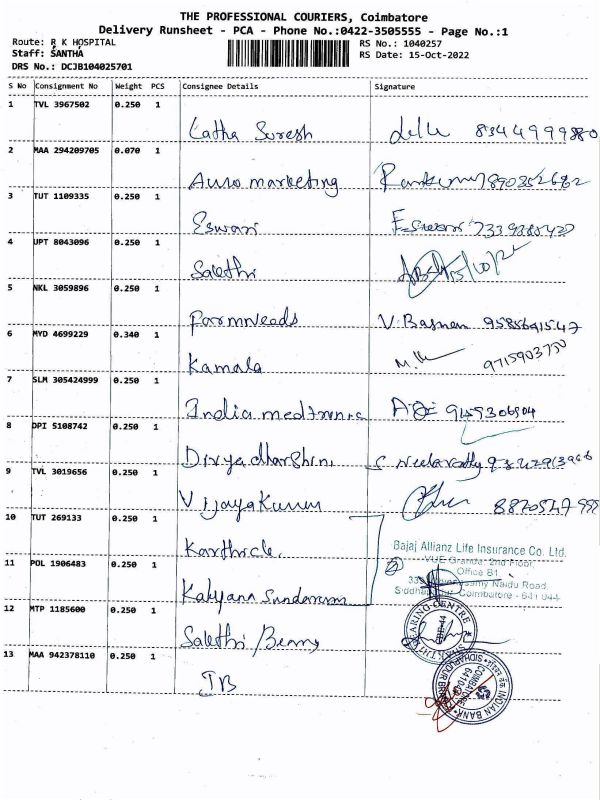 THE PROFESSIONAL COURIERS, Coimbatore
Delivery Runsheet - PCA - Phone No.:0422-3505555 - Page No.:1
Route: R K HOSPITAL
RS No.: 1040257
Staff: SANTHA
RS Date: 15-Oct-2022
DRS No.: DCJB104025701
S No Consignment No Weight PCS Consignee Details Signature
1 TVL 3967502 0.250 1
Latha Suresh 8344999880
2 MAA 294209705 0.070 1
Auro marketing 7890352682
3 TUT 1109335 0.250 1
Eswari Eswari
4 UPT 8043096 0.250 1
Salethi 15/10/22
5 NKL 3059896 0.250 1
Farmneeds
6 MYD 4699229 0.340 1
Kamala 9715903750
7 SLM 305424999 0.250 1
India medtronic 9159306904
8 DPI 5108742 0.250 1
Divyadharshini
9 TVL 3019656 0.250 1
Vijayakumar
10 TUT 269133 0.250 1
Karthick
Bajaj Allianz Life Insurance Co. Ltd.
VUE Grande, 2nd Floor,
11 POL 1906483 0.250 1
Office B1
Naidu Road,
Coimbatore - 641 044
Kalyana Sundaram
12 MTP 1185600 0.250 1
Salethi/Benny
HEARING CENTRE
13 MAA 942378110 0.250 1
IB
INDIAN BANK
COIMBATORE